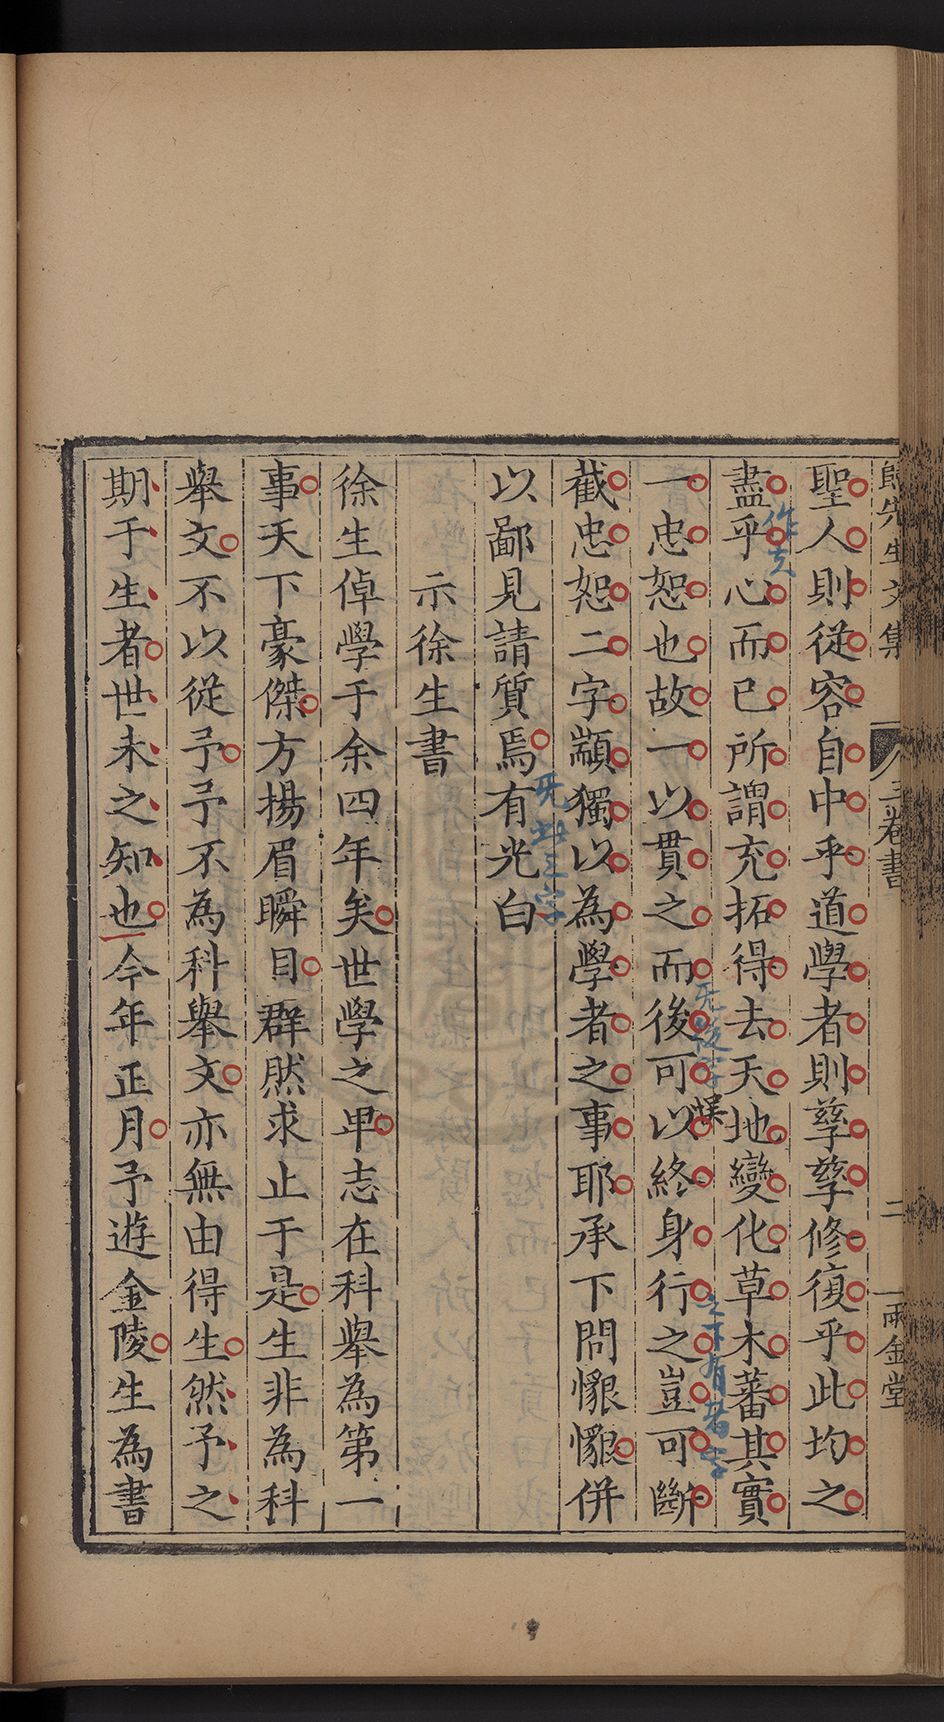 歸先生文集 三卷書 二 兩金堂
聖人則從容自中乎道學者則孳孳修復乎此均之
盡乎心而已所謂充拓得去天地變化草木蕃其實
作夫
一忠恕也故一以貫之而後可以終身行之豈可斷
无後字
誤
之下有者字
截忠恕二字顓獨以為學者之事耶承下問懇懇併
以鄙見請質焉有光白
无此三字
示徐生書
徐生倬學于余四年矣世學之卑志在科舉為第一
事天下豪傑方揚眉瞬目群然求止于是生非為科
舉文不以從予予不為科舉文亦無由得生然予之
期于生者世未之知也今年正月予遊金陵生為書